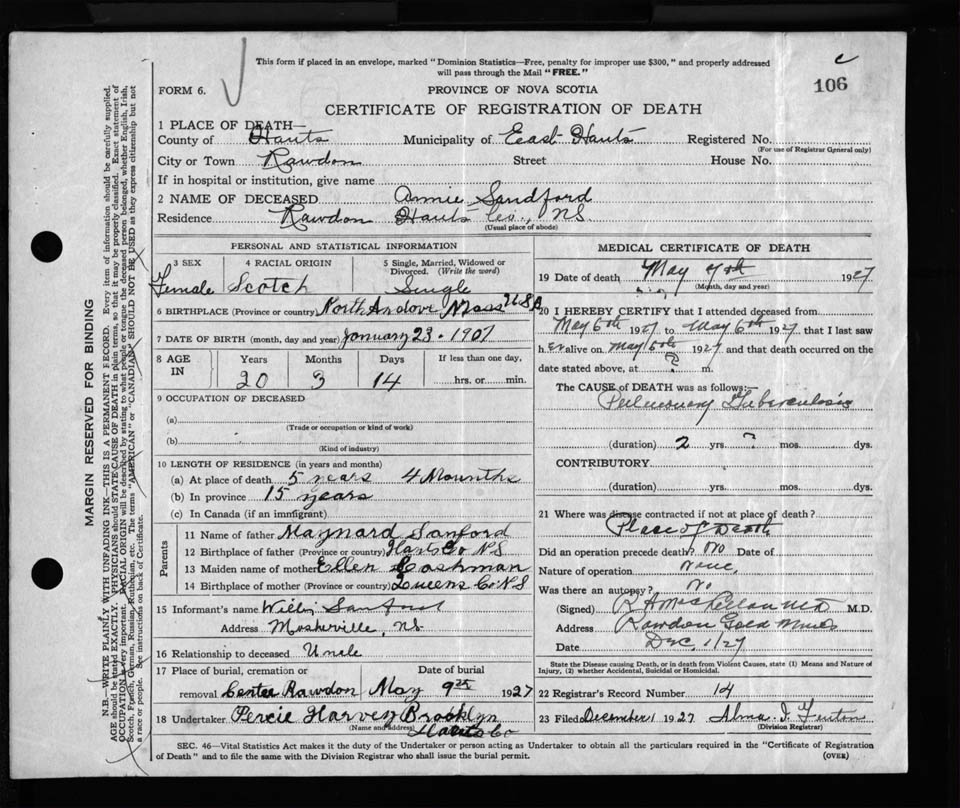 This form if placed in an envelope, marked "Dominion Statistics—Free, penalty for improper use $300," and properly addressed
will pass through the Mail "FREE."
c
106
FORM 6.
PROVINCE OF NOVA SCOTIA
CERTIFICATE OF REGISTRATION OF DEATH
1 PLACE OF DEATH—
County of Hants Municipality of East Hants Registered No.
(For use of Registrar General only)
City or Town Rawdon Street House No.
If in hospital or institution, give name
2 NAME OF DECEASED Annie Sandford
Residence Rawdon Hants Co., N.S.
(Usual place of abode)
PERSONAL AND STATISTICAL INFORMATION
3 SEX 4 RACIAL ORIGIN 5 Single, Married, Widowed or
Divorced. (Write the word)
Female Scotch Single
6 BIRTHPLACE (Province or country) North Andove Mass U.S.A
7 DATE OF BIRTH (month, day and year) January 23. 1907
8 AGE IN Years Months Days If less than one day,
20 3 14 hrs. or min.
9 OCCUPATION OF DECEASED
(a)
(Trade or occupation or kind of work)
(b)
(Kind of industry)
10 LENGTH OF RESIDENCE (in years and months)
(a) At place of death 5 years 4 Mounths
(b) In province 15 years
(c) In Canada (if an immigrant)
Parents
11 Name of father Maynard Sanford
12 Birthplace of father (Province or country) Hants Co N.S
13 Maiden name of mother Ellen Cashman
14 Birthplace of mother (Province or country) Queens Co N.S
15 Informant's name Sanford
Address Mosherville, N.S
16 Relationship to deceased Uncle
17 Place of burial, cremation or Date of burial
removal Center Rawdon May 9th 1927
18 Undertaker Percie Harvey Brooklyn
(Name and address) Hants Co
MEDICAL CERTIFICATE OF DEATH
19 Date of death May 7th 1927
(Month, day and year)
20 I HEREBY CERTIFY that I attended deceased from
May 6th 1927 to May 6th 1927, that I last saw
h er alive on May 6th 1927 and that death occurred on the
date stated above, at ? m.
The CAUSE of DEATH was as follows:—
Pulmonary Tuberculosis
(duration) 2 yrs. ? mos. dys.
CONTRIBUTORY
(duration) yrs. mos. dys.
21 Where was disease contracted if not at place of death?
Place of Death
Did an operation precede death? No Date of
Nature of operation None
Was there an autopsy? No
(Signed) M.D.
Address Rawdon Gold Mines
Date Dec, 1/27
State the Disease causing Death, or in death from Violent Causes, state (1) Means and Nature of
Injury, (2) whether Accidental, Suicidal or Homicidal.
22 Registrar's Record Number 14
23 Filed December 1 1927 Alma. I. Fenton
(Division Registrar)
SEC. 46—Vital Statistics Act makes it the duty of the Undertaker or person acting as Undertaker to obtain all the particulars required in the "Certificate of Registration
of Death" and to file the same with the Division Registrar who shall issue the burial permit. (OVER)
MARGIN RESERVED FOR BINDING
N.B.—WRITE PLAINLY WITH UNFADING INK—THIS IS A PERMANENT RECORD. Every item of information should be carefully supplied.
AGE should be stated EXACTLY. PHYSICIANS should STATE CAUSE OF DEATH in plain terms, so that it may be properly classified. Exact statement of
OCCUPATION is very important. RACIAL ORIGIN will be described by stating to what people or tongue the deceased person belonged, whether English, Irish,
Scotch, French, German, Russian, Ruthenian, etc. The terms "AMERICAN" or "CANADIAN" SHOULD NOT BE USED as they express citizenship but not
a race or people. See instructions on back of Certificate.